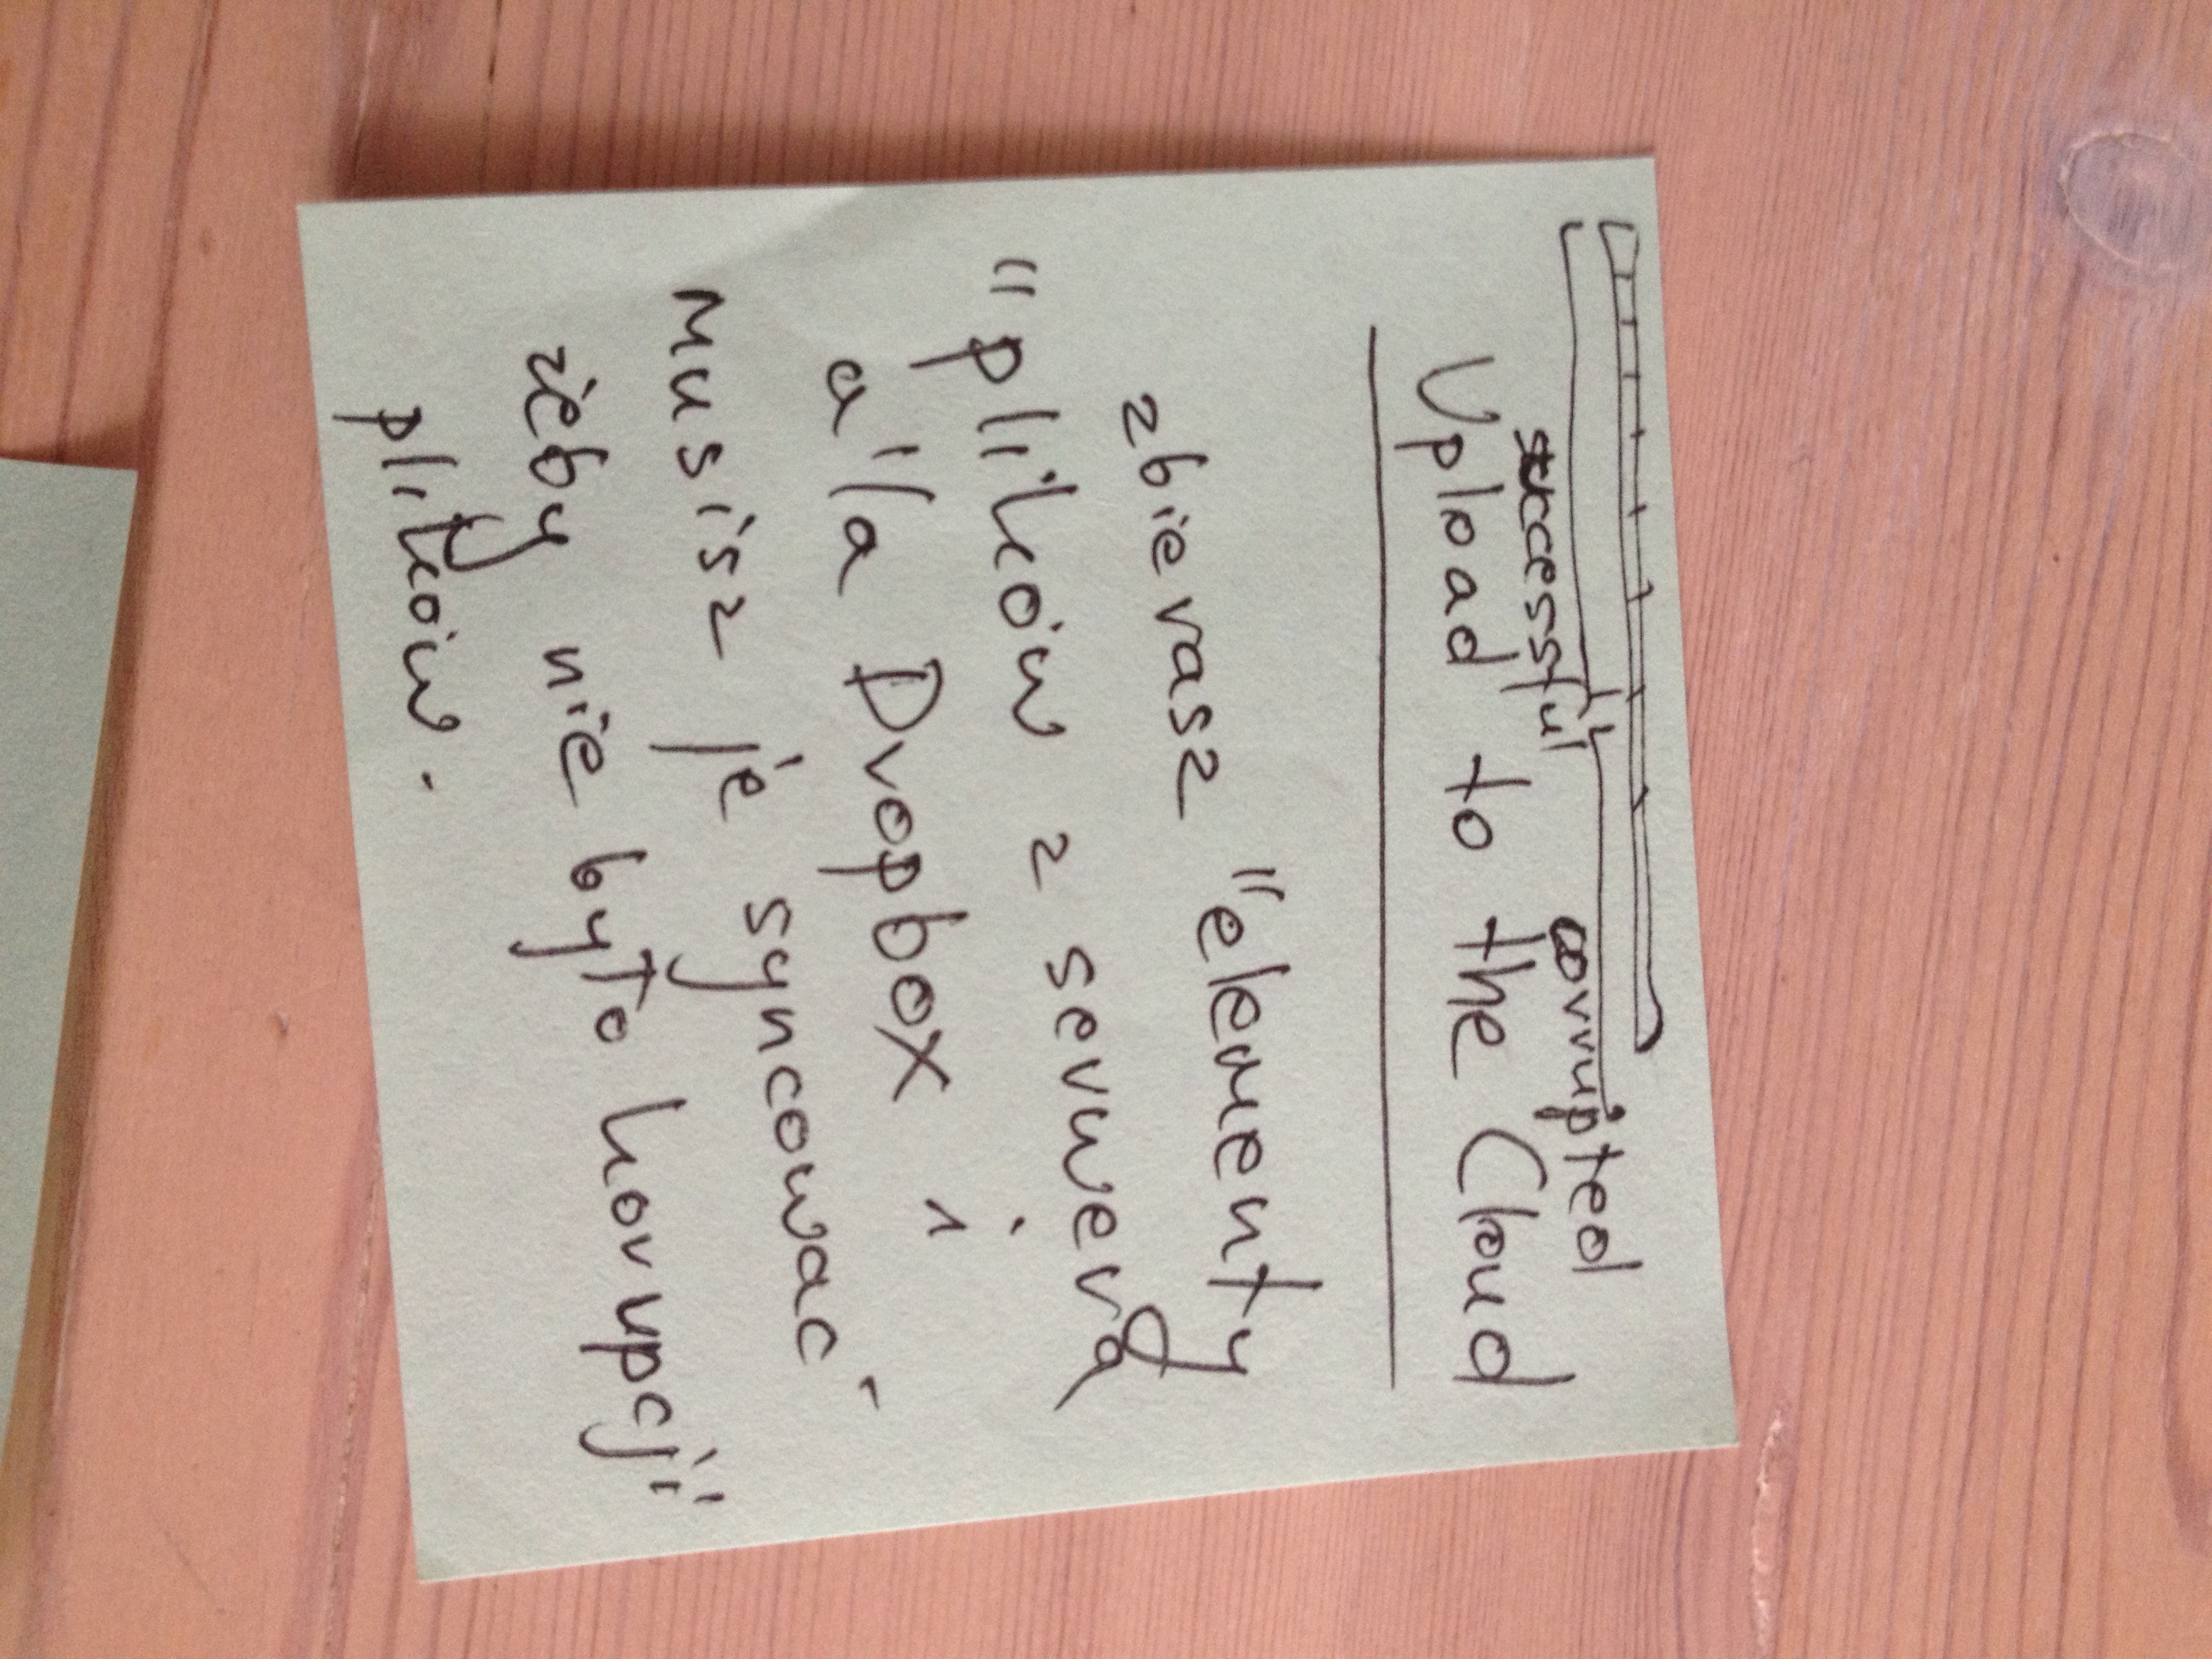 successful corrupted
Upload to the Cloud
zbierasz "elementy"
"plików z serwera
a'la Dropbox i
musisz je syncować
żeby nie było korupcji"
plików.